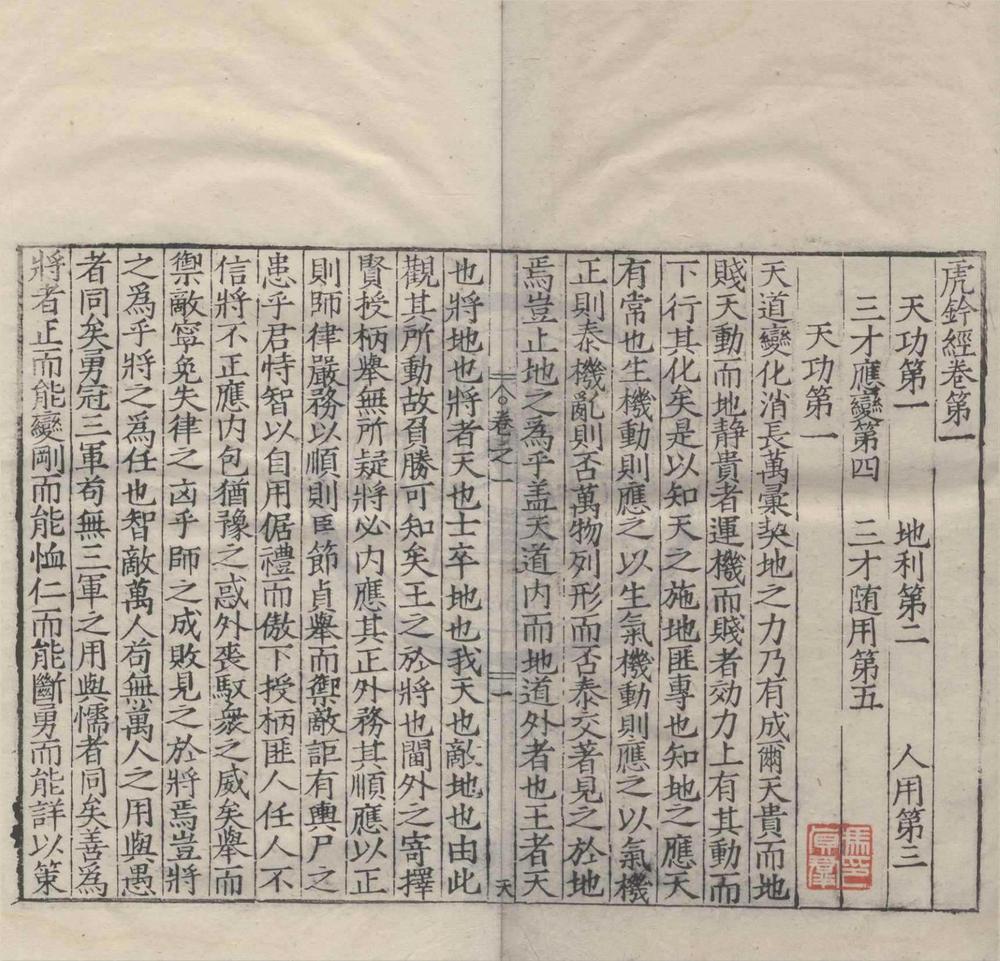 虎鈐經卷第一
天功第一　地利第二　人用第三
三才應變第四　三才随用第五
天功第一
天道變化消長萬彚契地之力乃有成爾天貴而地
賤天動而地静貴者運機而賤者効力上有其動而
下行其化矣是以知天之施地匪專也知地之應天
有常也生機動則應之以生氣機動則應之以氣機
正則泰機亂則否萬物列形而否泰交著見之於地
焉豈止地之為乎盖天道内而地道外者也王者天
卷之一　一　天
也將地也將者天也士卒地也我天也敵地也由此
觀其所動故負勝可知矣王之於將也閫外之寄擇
賢授柄舉無所疑將必内應其正外務其順應以正
則師律嚴務以順則臣節貞舉而禦敵詎有輿尸之
患乎君恃智以自用倨禮而傲下授柄匪人任人不
信將不正應内包猶豫之惑外喪馭衆之威矣舉而
禦敵寧免失律之凶乎師之成敗見之於將焉豈將
之為乎將之為任也智敵萬人苟無萬人之用與愚
者同矣勇冠三軍苟無三軍之用與懦者同矣善為
將者正而能變剛而能恤仁而能斷勇而能詳以策